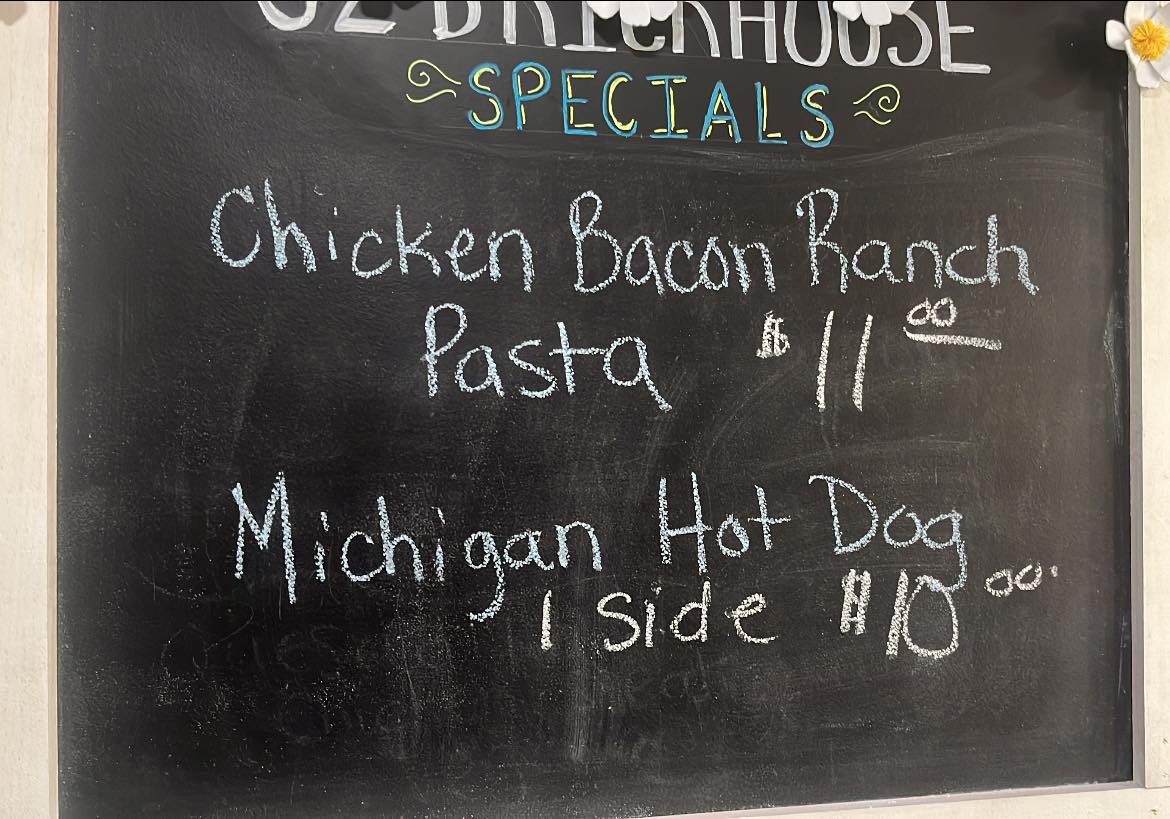 BRICKHOUSE
SPECIALS
Chicken Bacon Ranch
Pasta $11.00
Michigan Hot Dog
1 Side $10.00